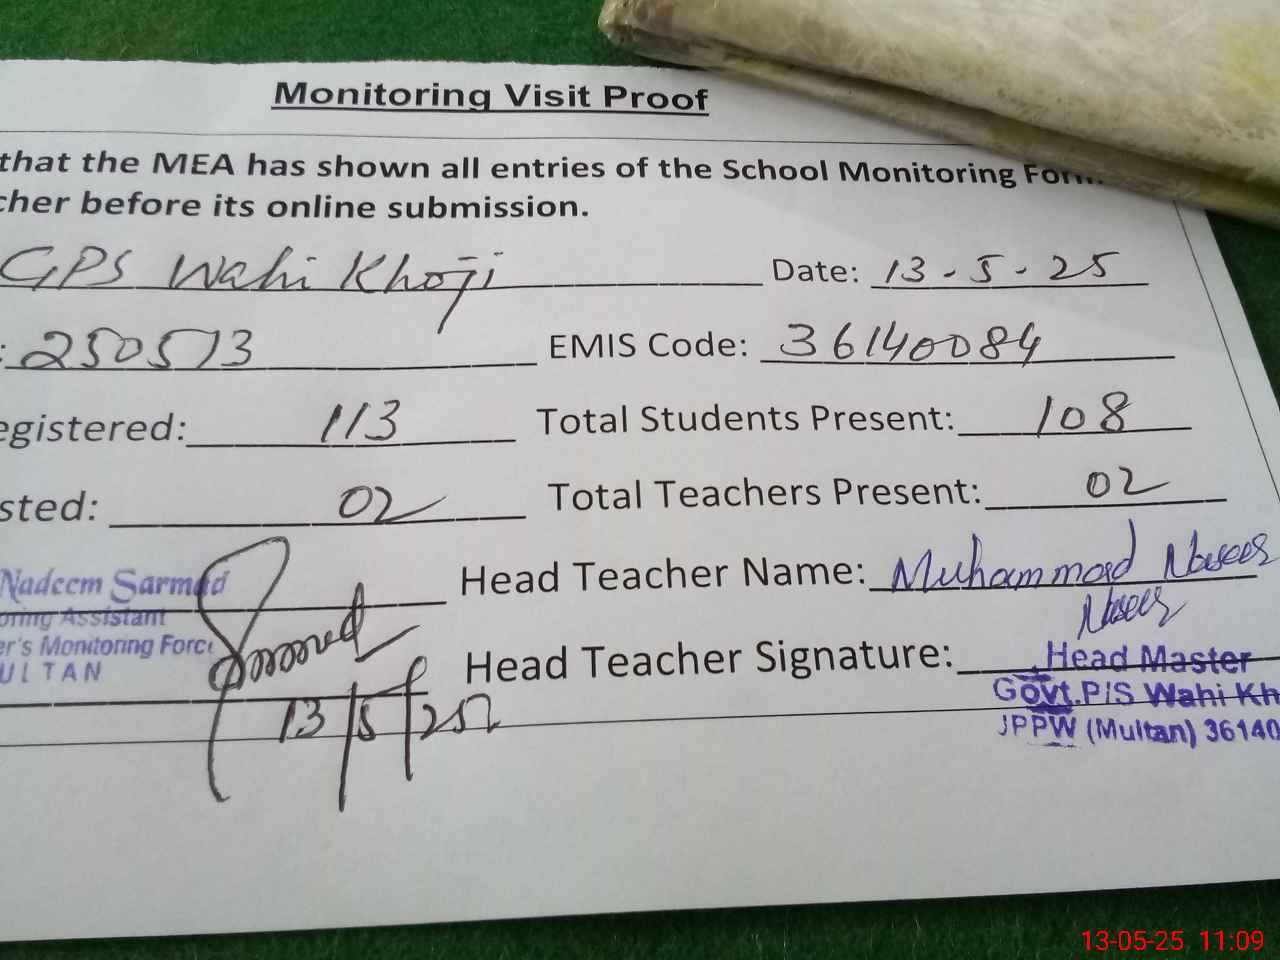 Monitoring Visit Proof
that the MEA has shown all entries of the School Monitoring Form
cher before its online submission.
GPS Wahi Khoji Date: 13-5-25
: 250513 EMIS Code: 36140084
egistered: 113 Total Students Present: 108
sted: 02 Total Teachers Present: 02
Nadeem Sarmad Head Teacher Name: Muhammad
oring Assistant
er's Monitoring Force
ULTAN
Head Teacher Signature:
Head Master
Govt.P/S Wahi Kh
JPPW (Multan) 36140
13/5/25
13-05-25 11:09